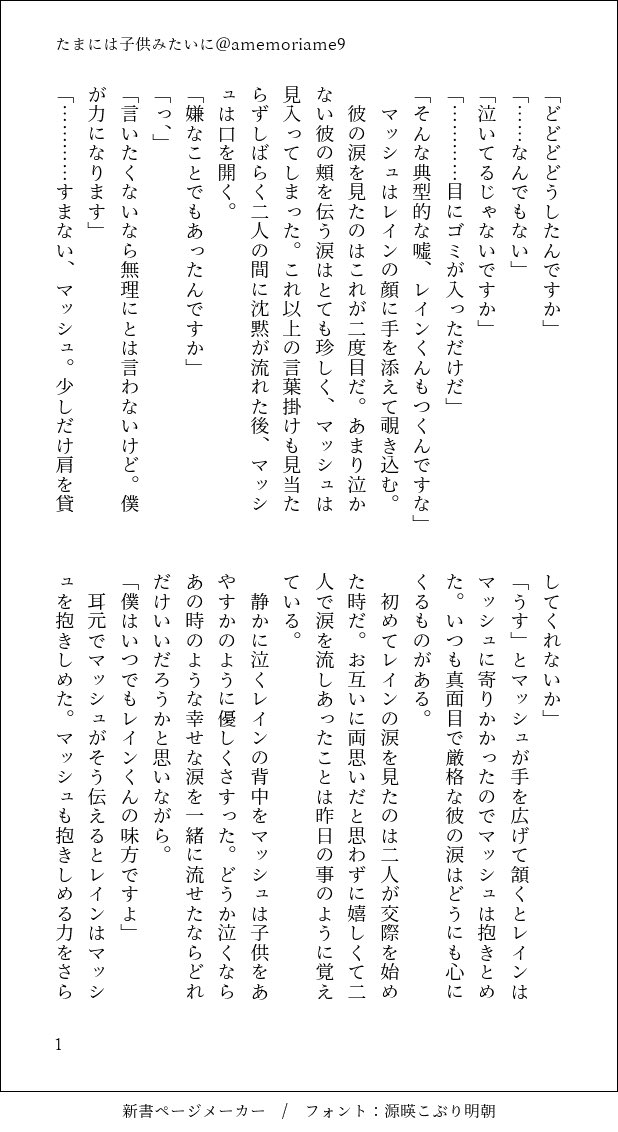 たまには子供みたいに@amemoriame9
「どどどどうしたんですか」
「……なんでもない」
「泣いてるじゃないですか」
「…………目にゴミが入っただけだ」
「そんな典型的な嘘、レインくんもつくんですな」
　マッシュはレインの顔に手を添えて覗き込む。
　彼の涙を見たのはこれが二度目だ。あまり泣か
ない彼の頬を伝う涙はとても珍しく、マッシュは
見入ってしまった。これ以上の言葉掛けも見当た
らずしばらく二人の間に沈黙が流れた後、マッシ
ュは口を開く。
「嫌なことでもあったんですか」
「っ、」
「言いたくないなら無理にとは言わないけど。僕
が力になります」
「…………すまない、マッシュ。少しだけ肩を貸
してくれないか」
「うす」とマッシュが手を広げて頷くとレインは
マッシュに寄りかかったのでマッシュは抱きとめ
た。いつも真面目で厳格な彼の涙はどうにも心に
くるものがある。
　初めてレインの涙を見たのは二人が交際を始め
た時だ。お互いに両思いだと思わずに嬉しくて二
人で涙を流しあったことは昨日の事のように覚え
ている。
　静かに泣くレインの背中をマッシュは子供をあ
やすかのように優しくさすった。どうか泣くなら
あの時のような幸せな涙を一緒に流せたならどれ
だけいいだろうかと思いながら。
「僕はいつでもレインくんの味方ですよ」
　耳元でマッシュがそう伝えるとレインはマッシ
ュを抱きしめた。マッシュも抱きしめる力をさら
1
新書ページメーカー　/　フォント：源暎こぶり明朝